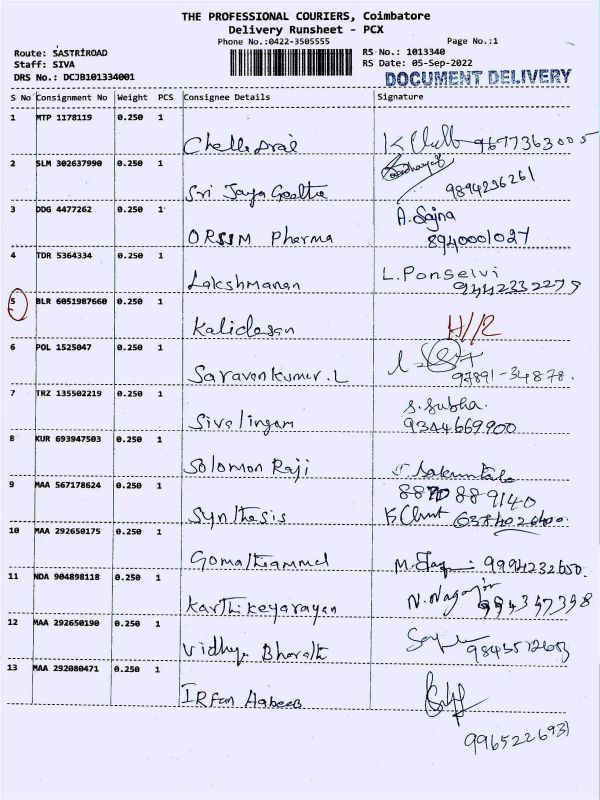 THE PROFESSIONAL COURIERS, Coimbatore
Delivery Runsheet - PCX
Phone No.:0422-3505555
Page No.:1
Route: SASTRIROAD
RS No.: 1013340
Staff: SIVA
RS Date: 05-Sep-2022
DRS No.: DCJB101334001
DOCUMENT DELIVERY
S No Consignment No Weight PCS Consignee Details Signature
1 MTP 1178119 0.250 1
9677363005
2 SLM 302637990 0.250 1
Sri Jaya Geetha
9894236261
3 DDG 4477262 0.250 1
A. Sajna
ORSSM Pharma
8940001027
4 TDR 5364334 0.250 1
Lakshmanan L. Ponselvi
9442232275
5 BLR 6051987660 0.250 1
Kalidasan
6 POL 1525047 0.250 1
Saravenkumar.L 97891-34878.
7 TRZ 135502219 0.250 1
S. Subha.
Sivalingam 9344669900
8 KUR 693947503 0.250 1
Solomon Raji
9 MAA 567178624 0.250 1
8870889140
Synthesis
10 MAA 292650175 0.250 1
Gomathiammal 9994232650.
11 NDA 904898118 0.250 1
Karthikeyarayan
12 MAA 292650190 0.250 1
Vidhya Bharath
13 MAA 292080471 0.250 1
IRFan Habeeb